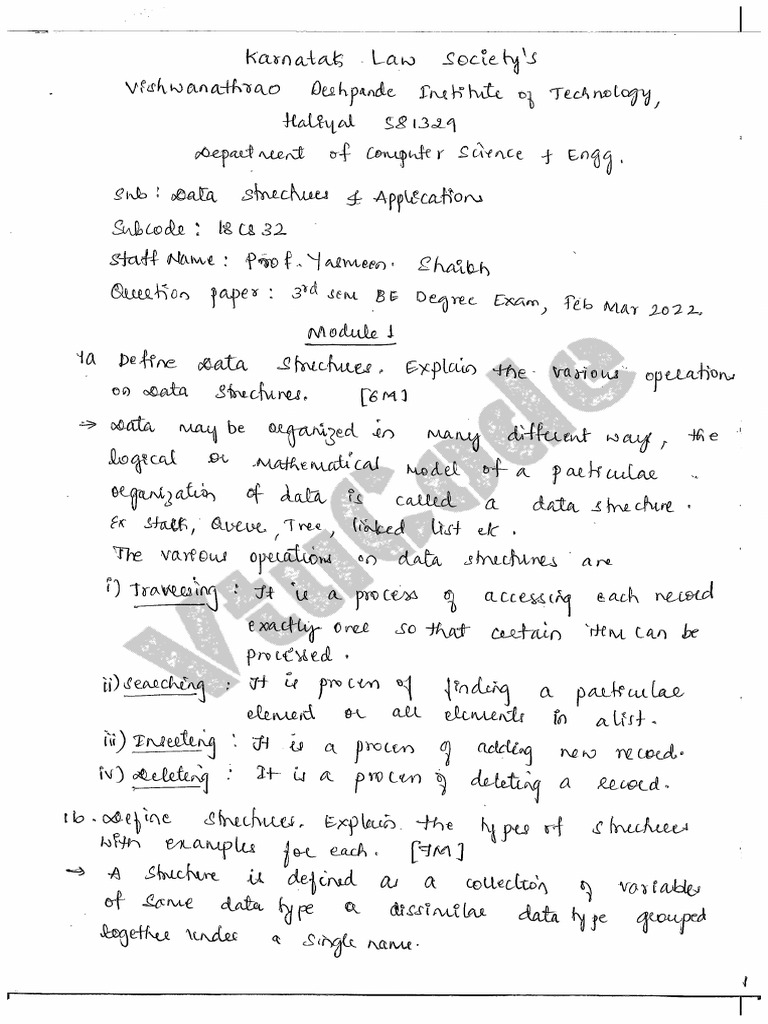 Karnatak Law Society's
Vishwanathrao Deshpande Institute of Technology,
Haliyal 581329
Department of Computer Science & Engg.
Sub: Data Structures & Applications
Subcode: 18CS32
Staff Name: Prof. Yasmeen. Shaikh
Question paper: 3rd sem BE Degree Exam, Feb Mar 2022.
Module 1
1a Define Data Structures. Explain the various operations
on Data Structures. [6M]
→ Data may be organized in many different ways, the
logical or Mathematical model of a particular
organization of data is called a data structure.
Ex Stack, Queue, Tree, linked list etc.
The various operations on data structures are
i) Traversing: It is a process of accessing each record
exactly once so that certain item can be
processed.
ii) Searching: It is process of finding a particular
element or all elements in a list.
iii) Inserting: It is a process of adding new record.
iv) Deleting: It is a process of deleting a record.
1b. Define Structures. Explain the types of structures
with examples for each. [7M]
→ A structure is defined as a collection of variables
of same data type or dissimilar data type grouped
together under a single name.
VtuCode
1